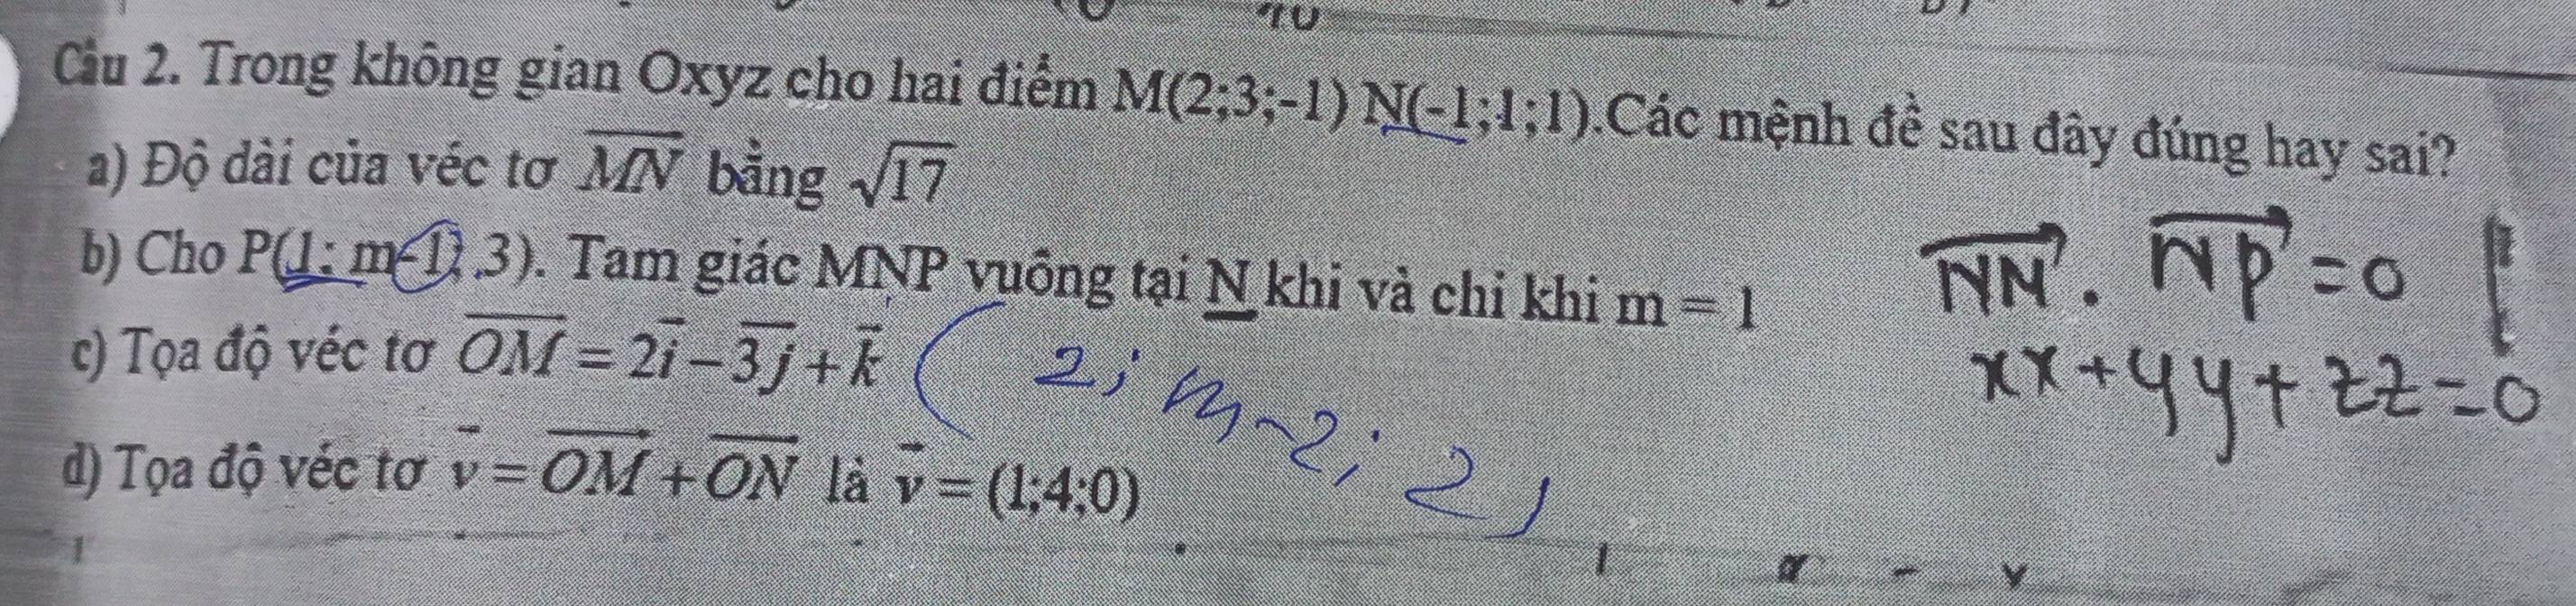 Câu 2. Trong không gian Oxyz cho hai điểm M(2;3;-1) N(-1;1;1).Các mệnh đề sau đây đúng hay sai?
a) Độ dài của véc tơ \overrightarrow{MN} bằng √17
b) Cho P(1; m-1; ,3). Tam giác MNP vuông tại N khi và chỉ khi m = 1
\overrightarrow{NM} . \overrightarrow{NP} = 0
c) Tọa độ véc tơ \overrightarrow{OM} = 2\vec{i} - \overrightarrow{3j} + \vec{k}
(2; m-2; 2)
xx + yy + zz = 0
d) Tọa độ véc tơ \vec{v} = \overrightarrow{OM} + \overrightarrow{ON} là \vec{v} = (1;4;0)